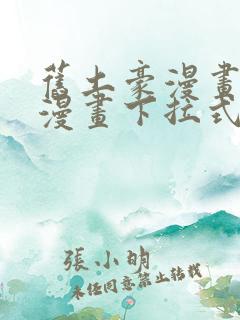 舊土豪漫畫
漫畫下拉式
張小明
未任同意禁止转载